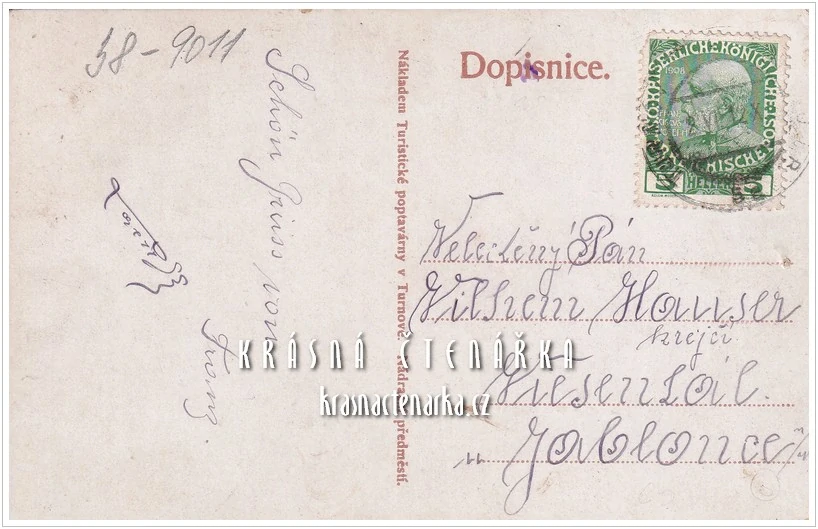 58-9011
Schön Griss von
Franz.
Dopisnice.
Nákladem Turistické poptavárny v Turnově. Nádražní předměstí.
1908
KAISERLICHE KÖNIGLICHE ÖSTERREICHISCHE
5 HELLER 5
Velectěný Pán
Vilhem Hauser
krejčí
Viesentál
u Jablonce n/N
KRÁSNÁ ČTENÁŘKA
krasnactenarka.cz